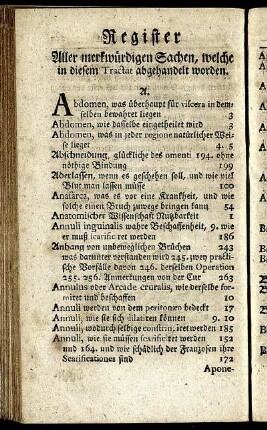 Register
Aller merkwürdigen Sachen, welche
in diesem Tractat abgehandelt worden.
A.
Abdomen, was überhaupt für viscera in dem-
selben bewahret liegen 3
Abdomen, wie dasselbe eingetheilet wird 3
Abdomen, was in jeder regione natürlicher Wei-
se lieget 4. 5
Abschneidung, glückliche des omenti 194. ohne
nöthige Bindung 199
Aderlassen, wenn es geschehen soll, und wie viel
Blut man lassen müsse 100
Anasarca, was es vor eine Krankheit, und wie
solche einen Bruch zuwege bringen kann 54
Anatomischer Wissenschaft Nutzbarkeit 1
Annuli inguinalis wahre Beschaffenheit, 9. wie
er muß scarificiret werden 186
Anhang von unbeweglichen Brüchen 243
was darunter verstanden wird 245. zwey practi-
sche Vorfälle davon 246. derselben Operation
255. 256. Anmerkungen von der Cur 263
Annulus oder Arcade cruralis, wie derselbe for-
miret und beschaffen 10
Annuli werden von dem peritonæo bedeckt 17
Annuli, wie sie sich dilatiren können 9. 10
Annuli, wodurch selbige constringiret werden 185
Annuli, wie sie müssen scarificiret werden 152
und 164. und wie schädlich der Franzosen ihre
Scarificationes sind 172
Apone-